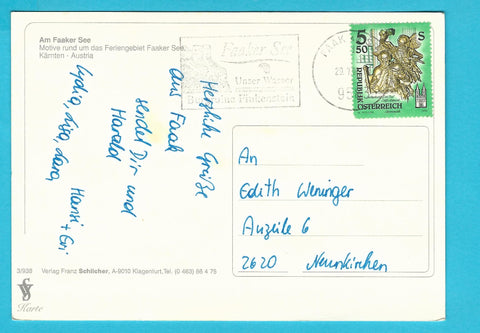 Am Faaker See
Motive rund um das Feriengebiet Faaker See,
Kärnten - Austria
Faaker See
Unser Wasser
Finkenstein
5 50 S
REPUBLIK
ÖSTERREICH
Herzliche Grüße
aus Faak
sendet Dir und
Harald
Lydia, Hansi + Evi
An
Edith Weninger
2620 Neunkirchen
3/938 Verlag Franz Schilcher, A-9010 Klagenfurt, Tel. (0 463) 86 4 75
Karte